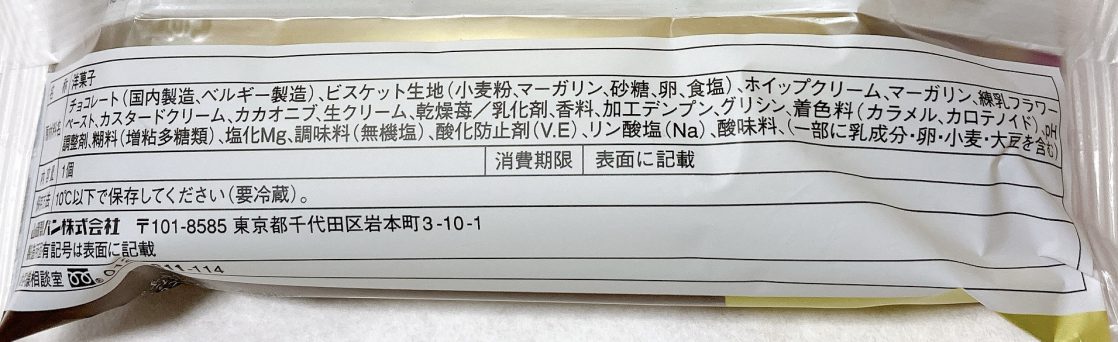 名 称 洋菓子
原材料名 チョコレート(国内製造、ベルギー製造)、ビスケット生地(小麦粉、マーガリン、砂糖、卵、食塩)、ホイップクリーム、マーガリン、練乳フラワー
ペースト、カスタードクリーム、カカオニブ、生クリーム、乾燥苺/乳化剤、香料、加工デンプン、グリシン、着色料(カラメル、カロテノイド)、pH
調整剤、糊料(増粘多糖類)、塩化Mg、調味料(無機塩)、酸化防止剤(V.E)、リン酸塩(Na)、酸味料、(一部に乳成分・卵・小麦・大豆を含む)
内容量 1個 消費期限 表面に記載
保存方法 10℃以下で保存してください(要冷蔵)。
山崎パン株式会社 〒101-8585 東京都千代田区岩本町3-10-1
製造所固有記号は表面に記載
お客様相談室 11-114